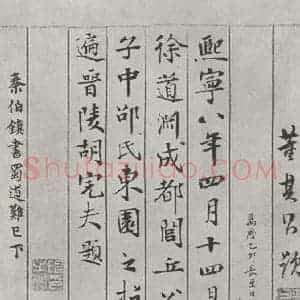 董其昌
萬曆乙卯
熙寧八年四月十四
徐道淵成都閭丘
子中邵氏東園之
遍晉陵胡完夫題
秦伯鎮書蜀道難已下
Shufaziliao.com